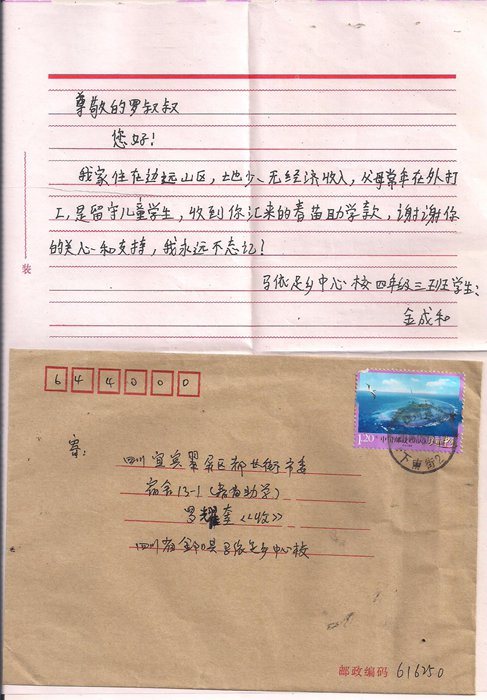 尊敬的罗叔叔
您好！
我家住在边远山区，土地少、无经济收入，父母常年在外打
工，是留守儿童学生，收到你汇来的青苗助学款，谢谢你
的关心和支持，我永远不忘记！
马依足乡中心校四年级三班学生：
金成和
装
644000
1.20
中国邮政
下東街2
寄：
四川宜宾翠屏区都长街市委
宿舍13-1（青苗助学）
罗耀奎《收》
四川省金阳县马依足乡中心校
邮政编码 616250